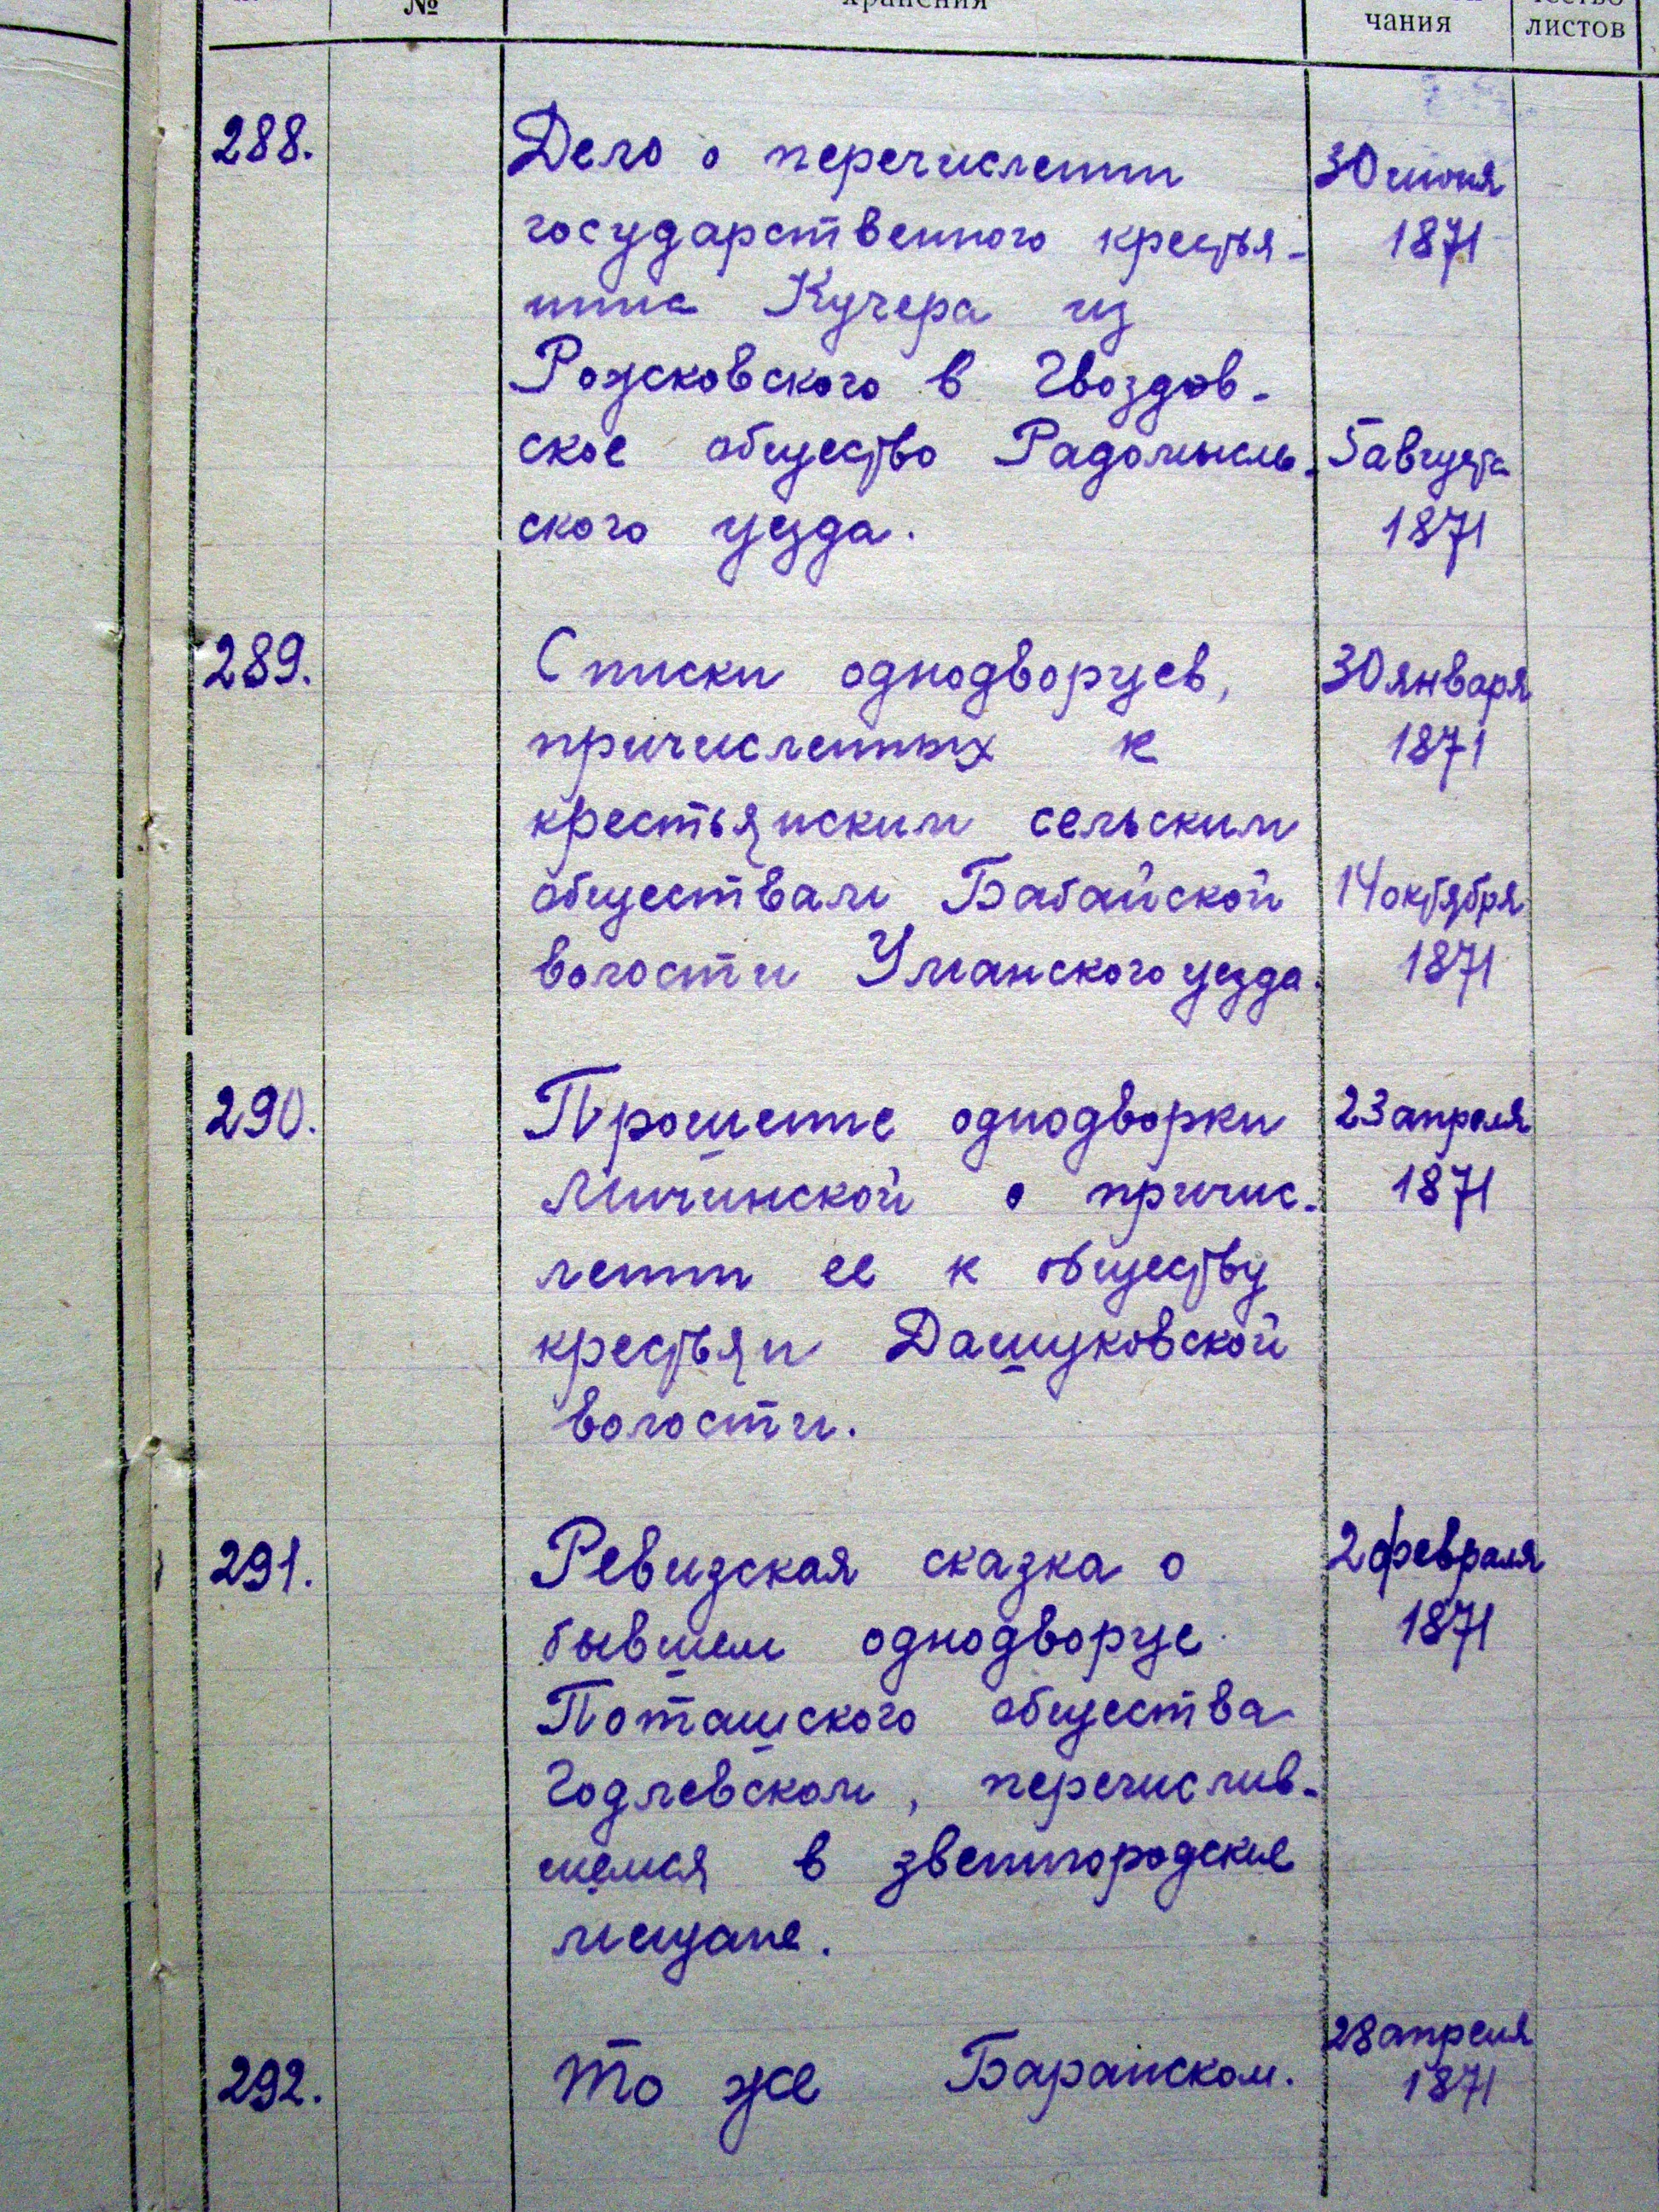 №
хранения
чания
листов
288.
Дело о перечислении
государственного крестья-
нина Кучера из
Рожковского в Гвоздов-
ское общество Радомысль-
ского уезда.
30 июня
1871
5 августа
1871
289.
Списки однодворцев,
причисленных к
крестьянским сельским
обществам Бабайской
волости Уманского уезда.
30 января
1871
14 октября
1871
290.
Прошение однодворки
Мичинской о причис-
лении ее к обществу
крестьян Дашуковской
волости.
23 апреля
1871
291.
Ревизская сказка о
бывшем однодворце
Поташского общества
Годлевском, перечислив-
шемся в звенигородские
мещане.
2 февраля
1871
292.
То же Баранском.
28 апреля
1871